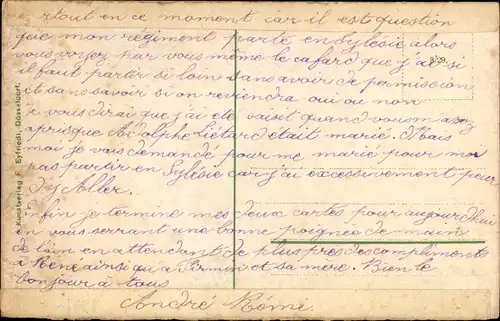 rtout en ce moment car il est question
que mon régiment parte en Sylésie alors
vous voyez par vous même le cafard que j'ai si
il faut partir si loin sans avoir de permission
et sans savoir si on reviendra oui ou non
je vous dirai que j'ai été quand vous m'avez
apris que Adolphe était marié. Mais
moi je vais demandé pour me marié pour moi
pas partir en Sylésie car j'ai excessivement peur
D'y Aller.
enfin je termine mes deux cartes pour aujourd'hui
en vous serrant une bonne poignée de main
de loin en attendant de plus pres des compliments
à Réné ainsi qu'a Firmin et sa mère. Bien le
bonjour à tous
André Rémi.
359.
Kunstverlag F. Eyfriedt, Düsseldorf.